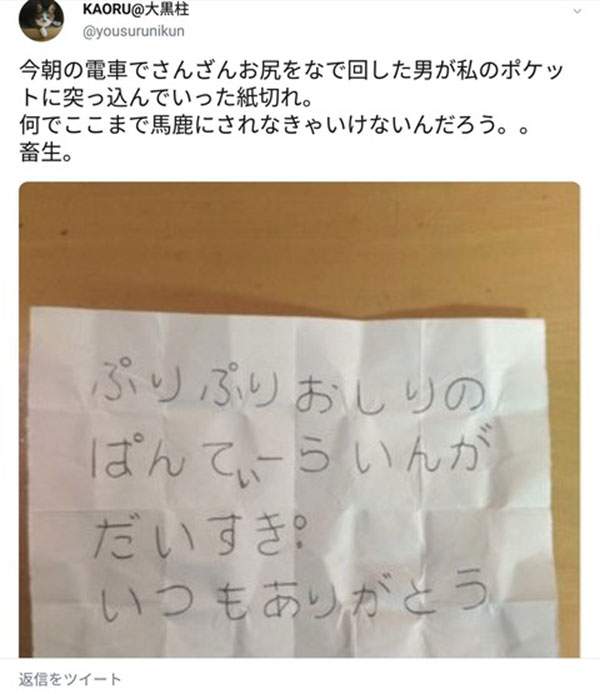 KAORU@大黒柱
@yousurunikun
今朝の電車でさんざんお尻をなで回した男が私のポケッ
トに突っ込んでいった紙切れ。
何でここまで馬鹿にされなきゃいけないんだろう。。
畜生。
ぷりぷりおしりの
ぱんてぃーらいんが
だいすき。
いつもありがとう
返信をツイート